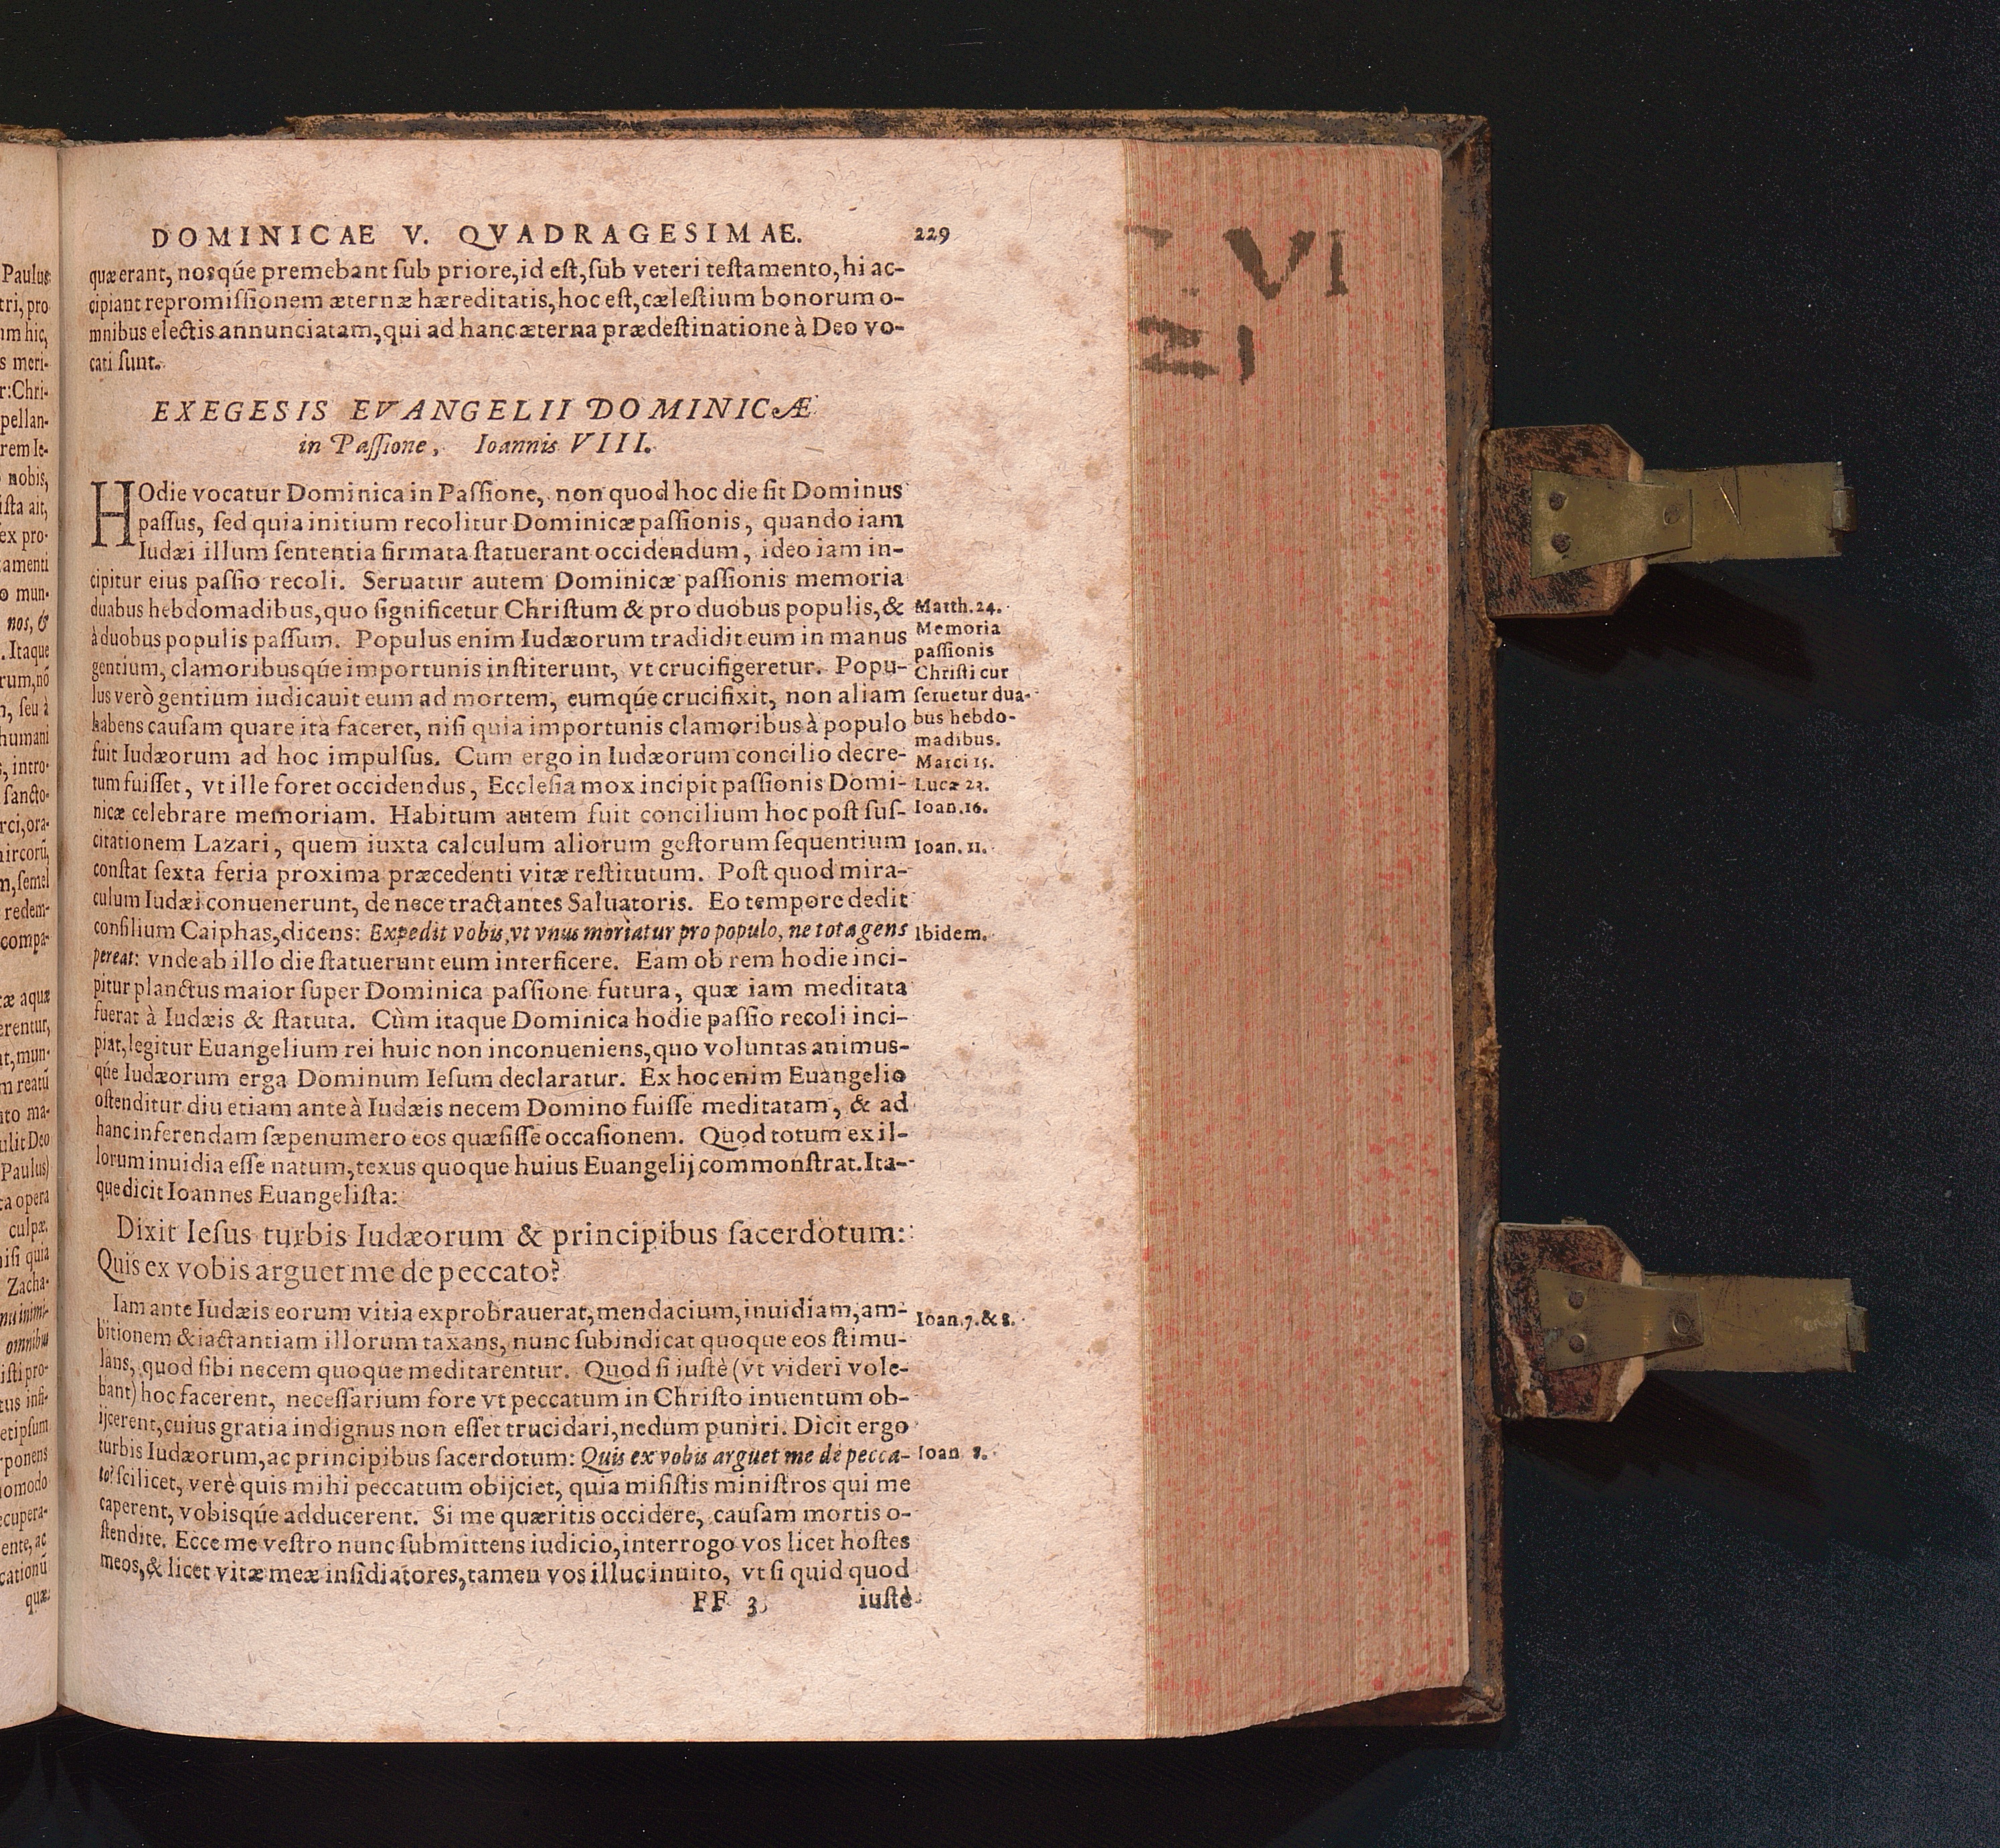 DOMINICAE V. QVADRAGESIMAE. 229
quæ erant, nosq́ue premebant sub priore, id est, sub veteri testamento, hi ac-
cipiant repromissionem æternæ hæreditatis, hoc est, cælestium bonorum o-
mnibus electis annunciatam, qui ad hanc æterna prædestinatione à Deo vo-
cati sunt.
EXEGESIS EVANGELII DOMINICÆ
in Passione, Ioannis VIII.
HOdie vocatur Dominica in Passione, non quod hoc die sit Dominus
passus, sed quia initium recolitur Dominicæ passionis, quando iam
Iudæi illum sententia firmata statuerant occidendum, ideo iam in-
cipitur eius passio recoli. Seruatur autem Dominicæ passionis memoria
duabus hebdomadibus, quo significetur Christum & pro duobus populis, &
à duobus populis passum. Populus enim Iudæorum tradidit eum in manus
gentium, clamoribusq́ue importunis institerunt, vt crucifigeretur. Popu-
lus verò gentium iudicauit eum ad mortem, eumq́ue crucifixit, non aliam
habens causam quare ita faceret, nisi quia importunis clamoribus à populo
fuit Iudæorum ad hoc impulsus. Cum ergo in Iudæorum concilio decre-
tum fuisset, vt ille foret occidendus, Ecclesia mox incipit passionis Domi-
nicæ celebrare memoriam. Habitum autem fuit concilium hoc post sus-
citationem Lazari, quem iuxta calculum aliorum gestorum sequentium
constat sexta feria proxima præcedenti vitæ restitutum. Post quod mira-
culum Iudæi conuenerunt, de nece tractantes Saluatoris. Eo tempore dedit
consilium Caiphas, dicens: Expedit vobis, vt vnus moriatur pro populo, ne tota gens
pereat: vnde ab illo die statuerunt eum interficere. Eam ob rem hodie inci-
pitur planctus maior super Dominica passione futura, quæ iam meditata
fuerat à Iudæis & statuta. Cùm itaque Dominica hodie passio recoli inci-
piat, legitur Euangelium rei huic non inconueniens, quo voluntas animus-
q́ue Iudæorum erga Dominum Iesum declaratur. Ex hoc enim Euangelio
ostenditur diu etiam ante à Iudæis necem Domino fuisse meditatam, & ad
hanc inferendam sæpenumero eos quæsisse occasionem. Quod totum ex il-
lorum inuidia esse natum, texus quoque huius Euangelij commonstrat. Ita-
que dicit Ioannes Euangelista:
Dixit Iesus turbis Iudæorum & principibus sacerdotum:
Quis ex vobis arguet me de peccato?
Iam ante Iudæis eorum vitia exprobrauerat, mendacium, inuidiam, am-
bitionem & iactantiam illorum taxans, nunc subindicat quoque eos stimu-
lans, quod sibi necem quoque meditarentur. Quod si iustè (vt videri vole-
bant) hoc facerent, necessarium fore vt peccatum in Christo inuentum ob-
ijcerent, cuius gratia indignus non esset trucidari, nedum puniri. Dicit ergo
turbis Iudæorum, ac principibus sacerdotum: Quis ex vobis arguet me de pecca-
to? scilicet, verè quis mihi peccatum obijciet, quia misistis ministros qui me
caperent, vobisq́ue adducerent. Si me quæritis occidere, causam mortis o-
stendite. Ecce me vestro nunc submittens iudicio, interrogo vos licet hostes
meos, & licet vitæ meæ insidiatores, tamen vos illuc inuito, vt si quid quod
FF 3 iustè
Matth. 24.
Memoria
passionis
Christi cur
seruetur dua-
bus hebdo-
madibus.
Marci 15.
Lucæ 23.
Ioan. 16.
Ioan. 11.
Ibidem.
Ioan. 7. & 8.
Ioan 8.
VI
Paulus
tri, pro
um hic,
s meri-
r: Chri-
pellan-
rem Ie-
nobis,
ista ait,
ex pro-
tamenti
o mun-
nos, &
. Itaque
rum, nõ
n, seu à
humani
s, intro-
sancto-
rci, ora-
hircorũ,
m, semel
redem-
compa-
æ aquæ
erentur,
at, mun-
m reatũ
nto ma-
ulit Deo
Paulus)
ta opera
culpæ,
nisi quia
Zacha-
omnibus
isti pro-
tus insi-
etipsum
ponens
omodo
ecupera-
ente, ac
cationũ
quæ